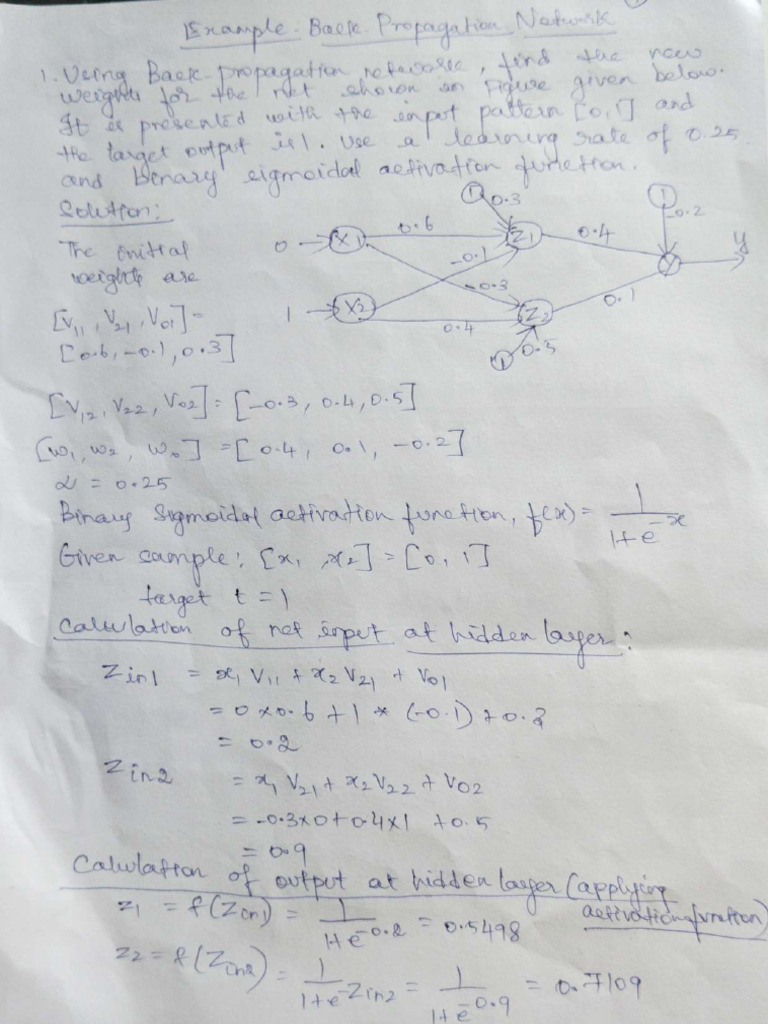 Example: Back Propagation Network
1. Using Back-propagation network, find the new
weights for the net shown in Figure given below.
It is presented with the input pattern [0,1] and
the target output is 1. Use a learning rate of 0.25
and binary sigmoidal activation function.
Solution:
The initial
weights are
[V11, V21, V01] =
[0.6, -0.1, 0.3]
0 X1 0.6 1 0.3 Z1 0.4 1 -0.2 Y y
-0.1
-0.3
1 X2 0.4 Z2 0.1
1 0.5
[V12, V22, V02] = [-0.3, 0.4, 0.5]
[w1, w2, w0] = [0.4, 0.1, -0.2]
α = 0.25
Binary Sigmoidal activation function, f(x) = 1 / 1+e^-x
Given sample: [x1, x2] = [0, 1]
target t = 1
Calculation of net input at hidden layer:
Zin1 = x1 V11 + x2 V21 + V01
= 0 x 0.6 + 1 * (-0.1) + 0.3
= 0.2
Zin2 = x1 V21 + x2 V22 + V02
= -0.3x0 + 0.4x1 + 0.5
= 0.9
Calculation of output at hidden layer (applying
activation function)
z1 = f(Zin1) = 1 / 1+e^-0.2 = 0.5498
z2 = f(Zin2) = 1 / 1+e^-Zin2 = 1 / 1+e^-0.9 = 0.7109